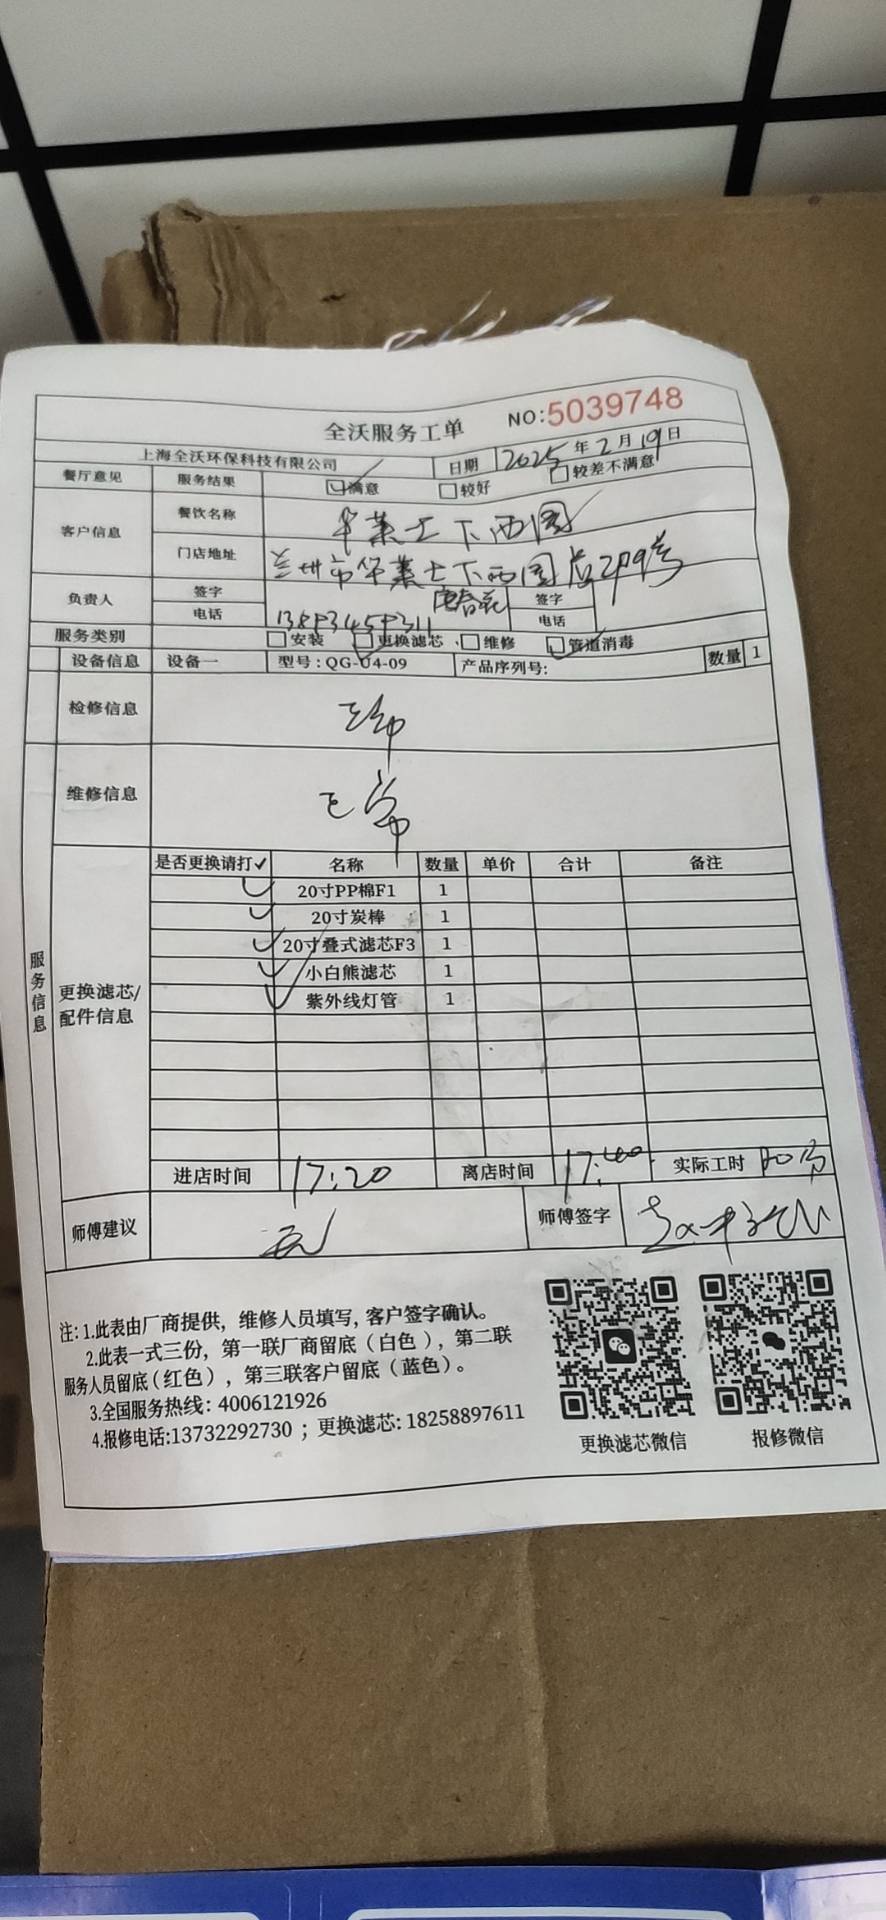 全沃服务工单 NO:5039748
上海全沃环保科技有限公司 日期 2025年2月19日
餐厅意见 服务结果 满意 较好 较差不满意
客户信息 餐饮名称 华莱士下西园
门店地址 兰州市华莱士下西园店299号
负责人 签字 签字
电话 电话
服务类别 安装 更换滤芯 维修 管道消毒
设备信息 设备一 型号:QG-U4-09 产品序列号: 数量 1
检修信息 正常
维修信息 正常
服务信息
更换滤芯/配件信息
是否更换请打✓ 名称 数量 单价 合计 备注
✓ 20寸PP棉F1 1
✓ 20寸炭棒 1
✓ 20寸叠式滤芯F3 1
✓ 小白熊滤芯 1
✓ 紫外线灯管 1
进店时间 17:20 离店时间 17:40 实际工时 20分
师傅建议 无 师傅签字
注:1.此表由厂商提供，维修人员填写,客户签字确认。
2.此表一式三份，第一联厂商留底（白色），第二联
服务人员留底(红色），第三联客户留底（蓝色）。
3.全国服务热线：4006121926
4.报修电话:13732292730；更换滤芯:18258897611
更换滤芯微信 报修微信